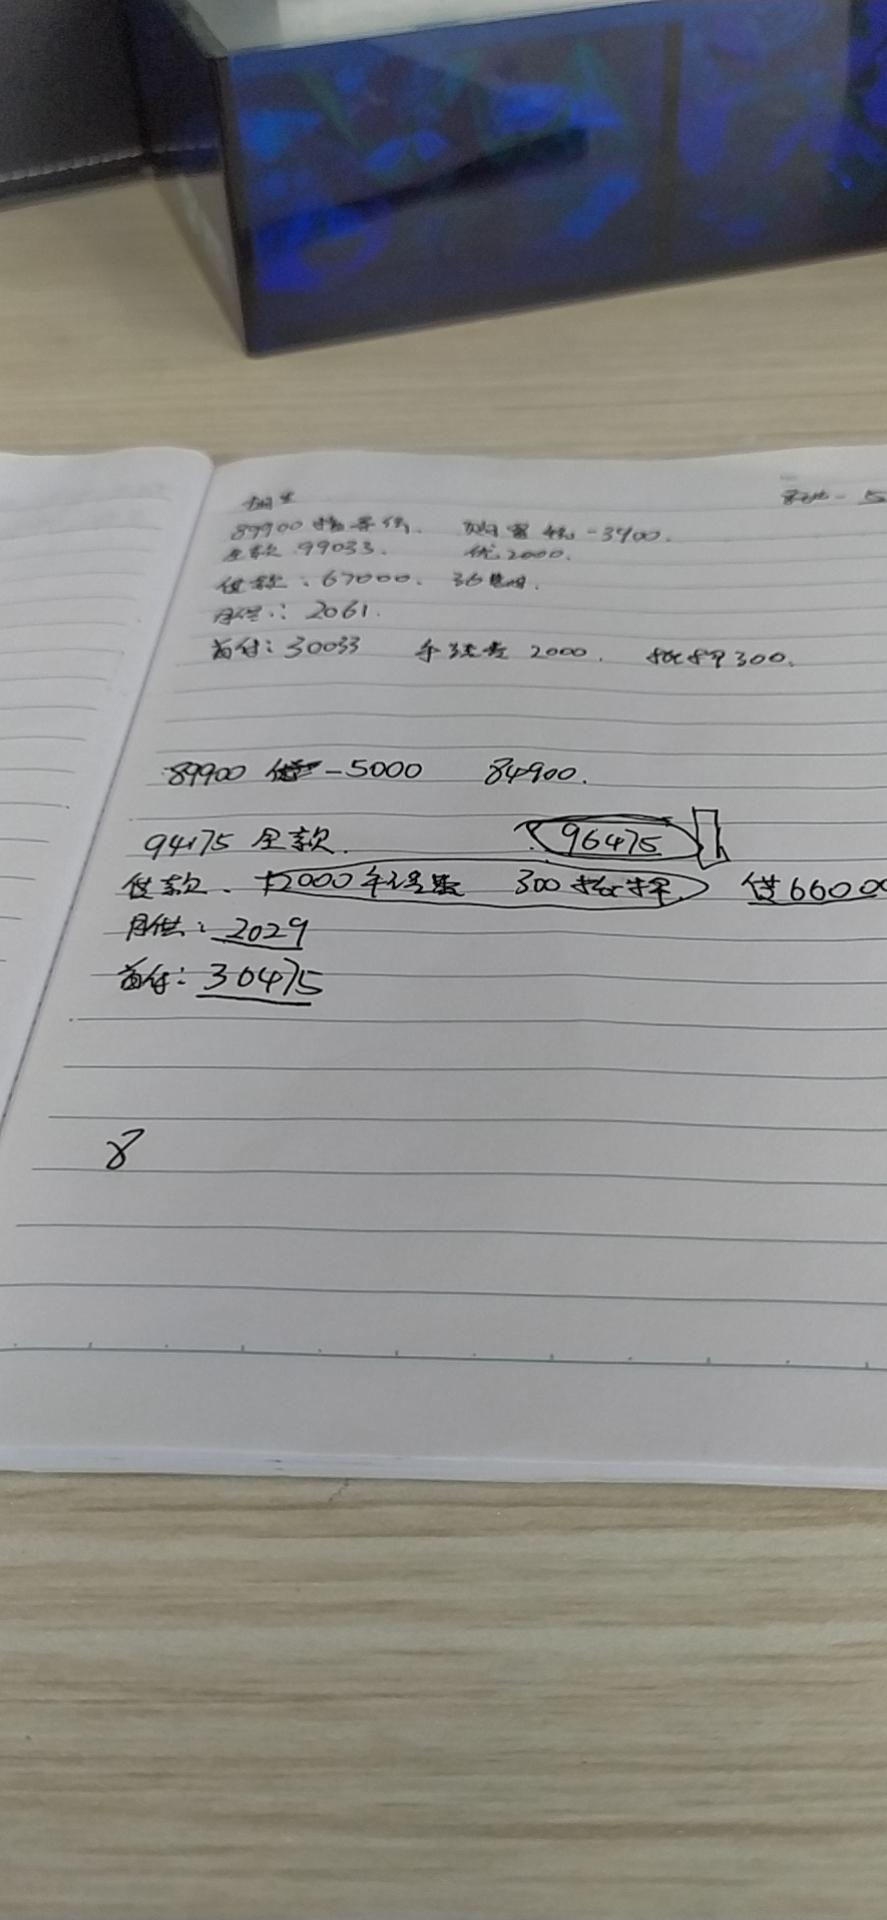 89900 指导价. 购置税 -3900.
全款 99033. 优 2000.
贷款: 67000. 36期.
月供: 2061.
首付: 30033 手续费 2000. 抵押 300.
89900 -5000 84900.
94175 全款. 96475
贷款. +2000 手续费 300 抵押. 贷 66000
月供: 2029
首付: 30475
8